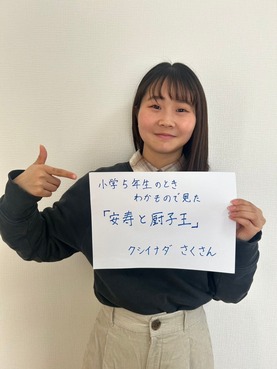 小学5年生のとき
わかもので見た
「安寿と厨子王」
クシイナダ さくさん